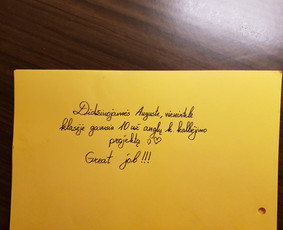 Didžiuojamės Auguste, vienintele
klasėje gavusia 10 už anglų k. kalbėjimo
projektą :)♡
Great job!!!